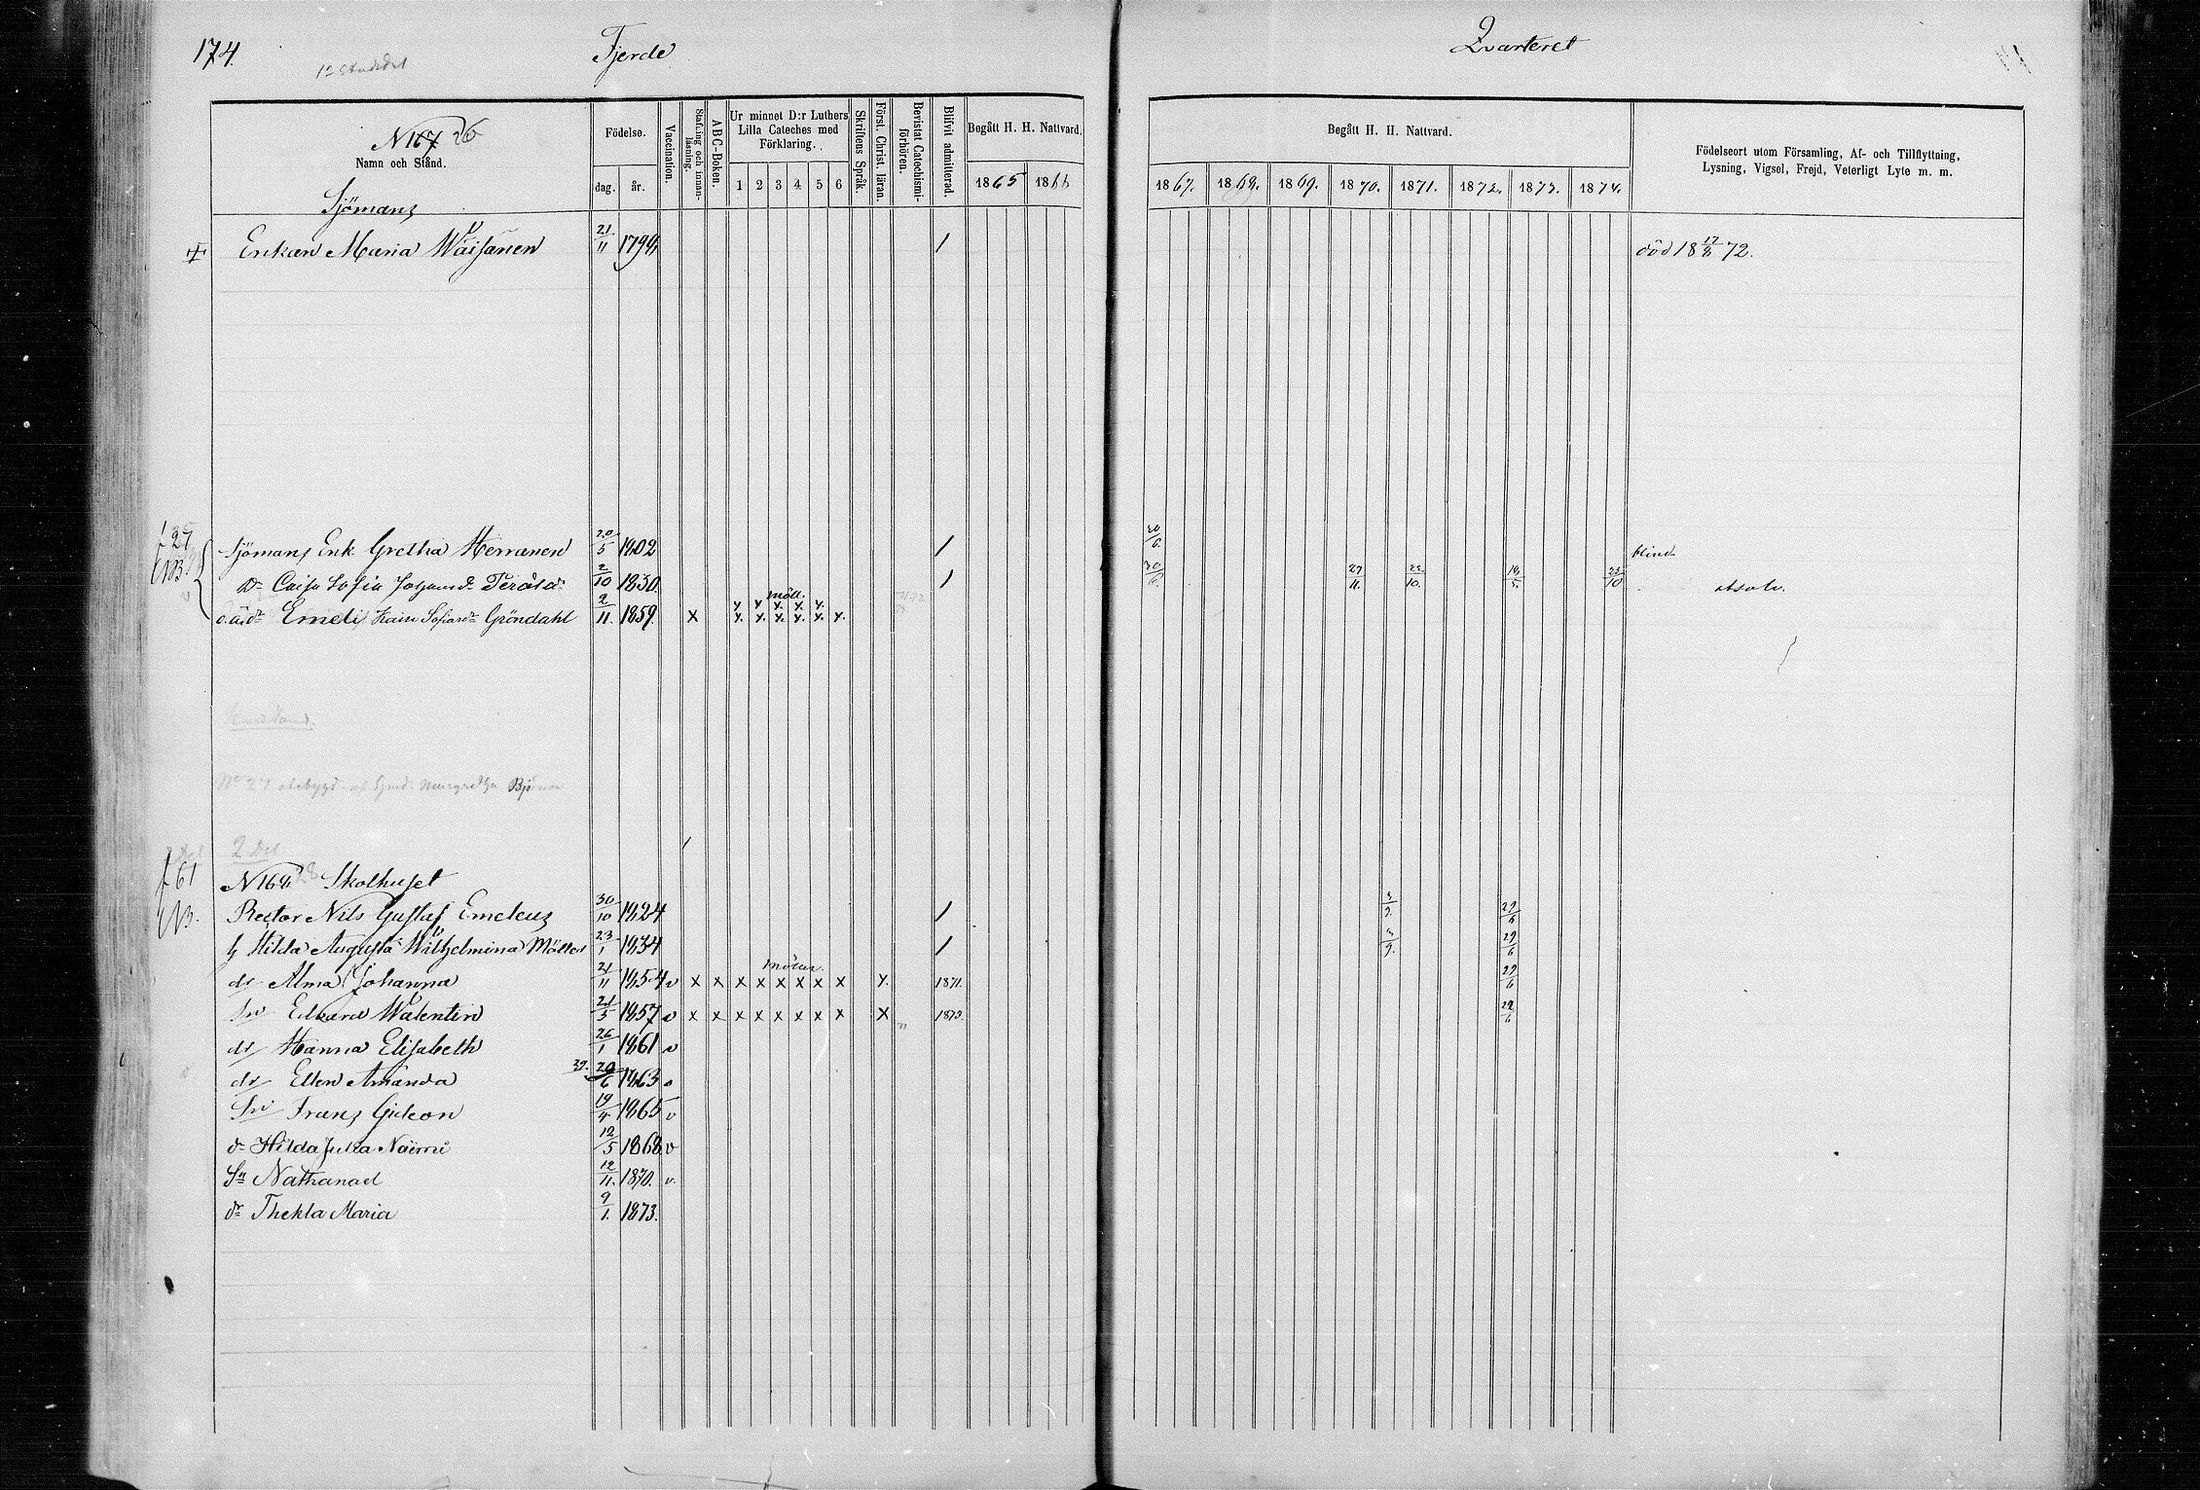 174.
Fjerde
Qvarteret
N 167 26
Namn och Stånd.
Födelse.
dag.
år.
Vaccination.
Stafning och innanläsning.
ABC-Boken.
Ur minnet D:r Luthers
Lilla Cateches med
Förklaring.
1 2 3 4 5 6
Skriftens Språk.
Först. Christ. läran.
Bevistat Catechismiförhören.
Blifvit admitterad.
Begått H. H. Nattvard.
1865 1866
Begått H. H. Nattvard.
1867. 1868. 1869. 1870. 1871. 1872. 1873. 1874.
Födelseort utom Församling, Af- och Tillflyttning,
Lysning, Vigsel, Frejd, Veterligt Lyte m. m.
Sjömans
Enkan Maria Wäisänen 21/11 1794 / död 18 17/8 72.
f 27
Sjömans Enk Gretha Herranen 20/5 1802 / 30/6. blind
Dr Caisa Sofia Johansdr 2/10 1830. / 30/6. 27/11. 22/10. 18/5. 25/10 absolv.
o.ä.dr Emeli Kaisa Sofiasdr Gröndahl 2/11. 1859. x
2 Del
f 61
N 169 28 Skolhuset
Rector Nils Gustaf Emeleus 30/10 1824 / 3/9. 29/6
h Hilda Augusta Wilhelmina Möller 23/1 1834 / 3/9. 29/6
dr Alma Johanna 21/11 1854 v x x x x x x x x y. 1871. 29/6
Sn Edvard Walentin 21/5 1857 v x x x x x x x x x 1873. 29/6
dr Hanna Elisabeth 26/1 1861 v
dr Ellen Amanda 29. 20/6 1863 v
Sn Frans Gideon 19/4 1865 v
dr Hilda Julia Naimi 12/5 1868 v
Sn Nathanael 12/11. 1870. v.
dr Thekla Maria 9/1. 1873.